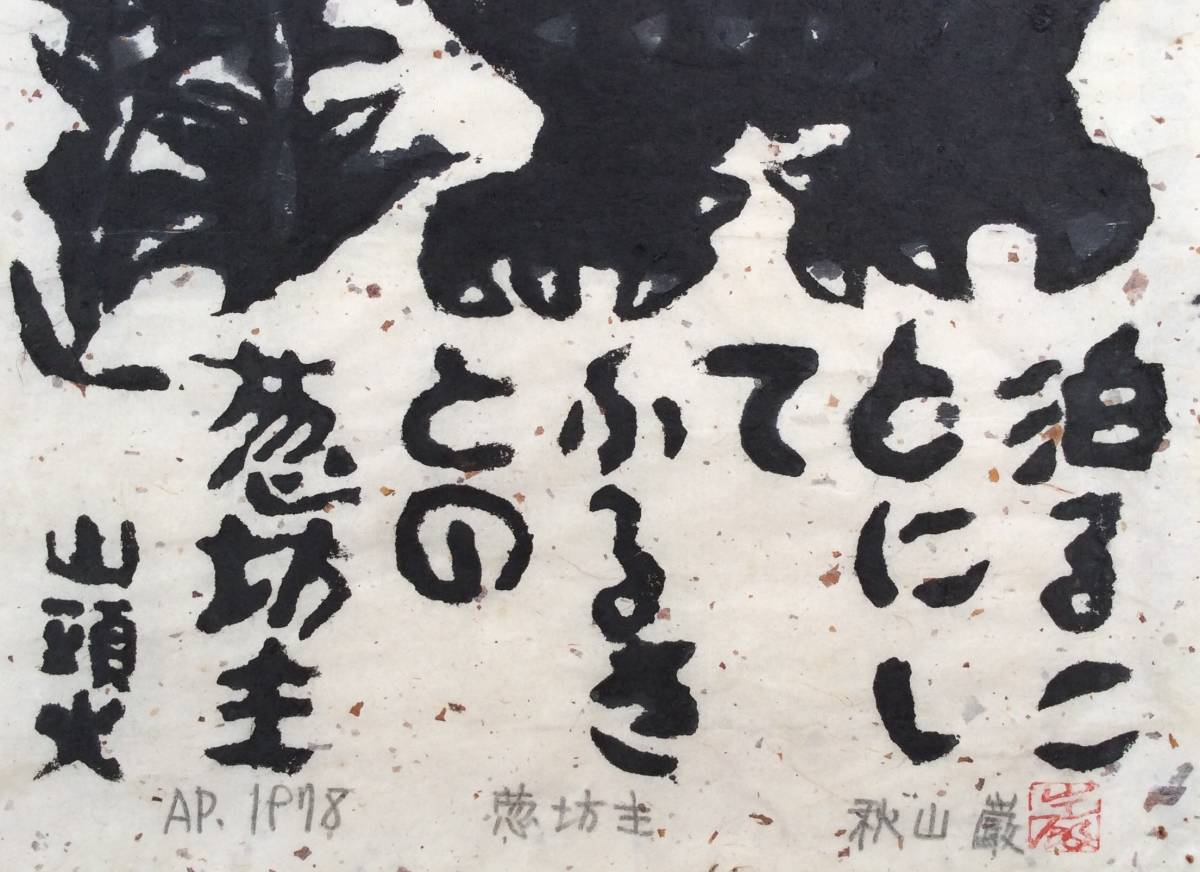 泊るこ
とにし
て
ふるさ
との
葱坊主
山頭火
AP. 1978
葱坊主
秋山巌